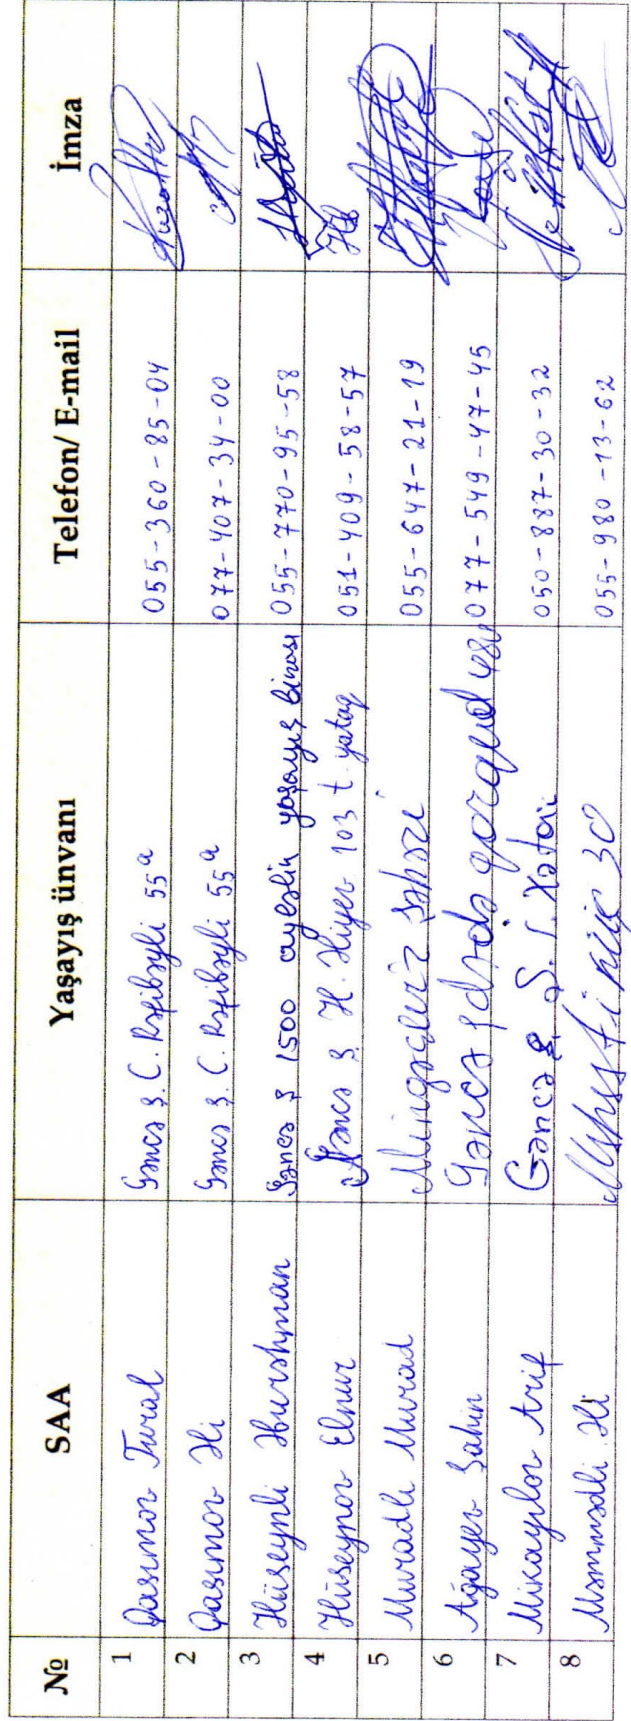 № SAA Yaşayış ünvanı Telefon/ E-mail İmza
1 Qasımov Tural Gəncə ş. C. Rəfibəyli 55a 055-360-85-04
2 Qasımov Əli Gəncə ş. C. Rəfibəyli 55a 077-407-34-00
3 Hüseynli Əburəhman Gəncə ş 1500 ayeslin yaşayış binası 055-770-95-58
4 Hüseynov Elnur Gəncə ş. H. Əliyev 103 t. yataq 051-409-58-57
5 Muradlı Murad Mingəçevir şəhəri 055-647-21-19
6 Ağayev Şahin Gəncə ş dədə qorqud 077-549-47-45
7 Mikayılov Arif Gəncə ş. Ş. İ. Xətai 050-887-30-32
8 Məmmədli Əli 30 055-980-13-62